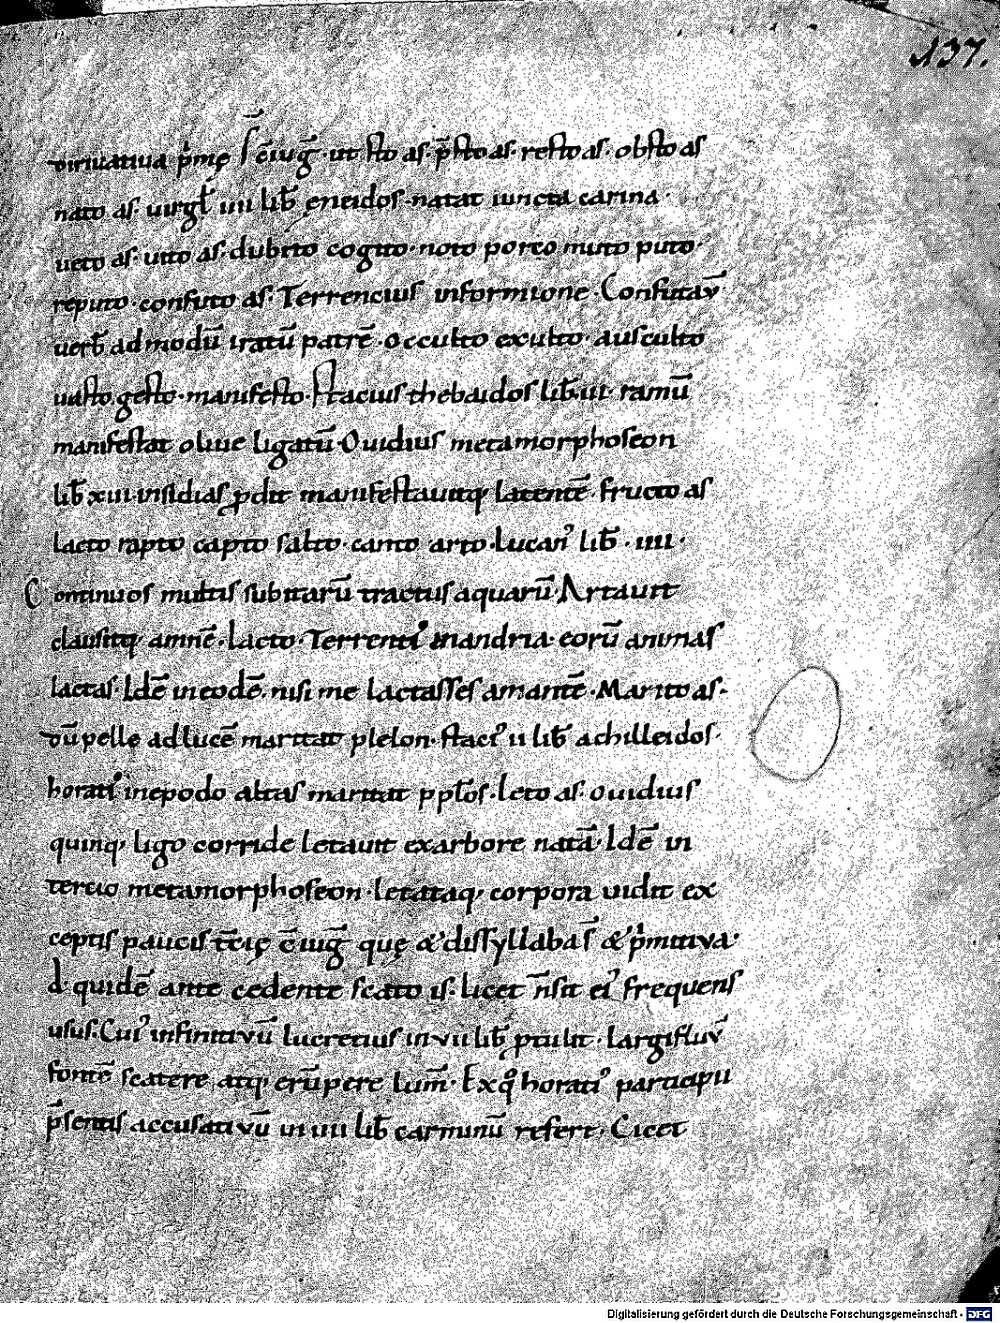 137.
diriuatiua p̄mę s̄ c̄iug̅ · ut sto as · p̄sto as · resto as · obsto as
nato as · uirgł iiii lib̅ ęneidos · natat iuncta carina ·
ueto as · uito as · dubito cogito · noto porto muto puto ·
reputo · confuto as · Terrencius informione · Confutav̄
uerb̅ admodū iratū patrē · Occulto exulto · ausculto
uasto gesto · manifesto · Stacius thebaidos lib̅ · ui · ramū
manifestat oliue ligatū · Ouidius metamorphoseon
lib̅ xiii · insidias pdit manifestauitq; latentē · fructo as
lacto rapto capto salto · canto arto · Lucanꝰ lib̅ · iiii ·
Continuos multis subitarū tractus aquarū · Artauit
clausitq; amnē · Lacto · Terrentiꝰ inandria · eorū animas
lactas · Idē ineodē · nisi me lactasses amantē · Marito as ·
dū pelle adlucē maritat pleton · staciꝰ ii lib̅ achilleidos ·
horatiꝰ inepodo altas maritat p płos · Leto as · ouidius
quinq; ligo corride letauit exarbore natā · Idē in
tercio metamorphoseon · letataq; corpora uidit ex
ceptis paucis t̄cię c̄iug̅ quę & dissyllaba s̄ & p̄mitiva ·
d · quidē ante cedente scato is · licet n̄ sit eiꝰ frequens
usus · Cuiꝰ infinitivū lucretius in vii lib̅ ptulit · Largifluv̄
fontē scatere atq; erūpere lum̄ · Exqͦ horatiꝰ participii
p̄sentis accusativū in iiii lib̅ carminū refert · Cicet
Digitalisierung gefördert durch die Deutsche Forschungsgemeinschaft - DFG